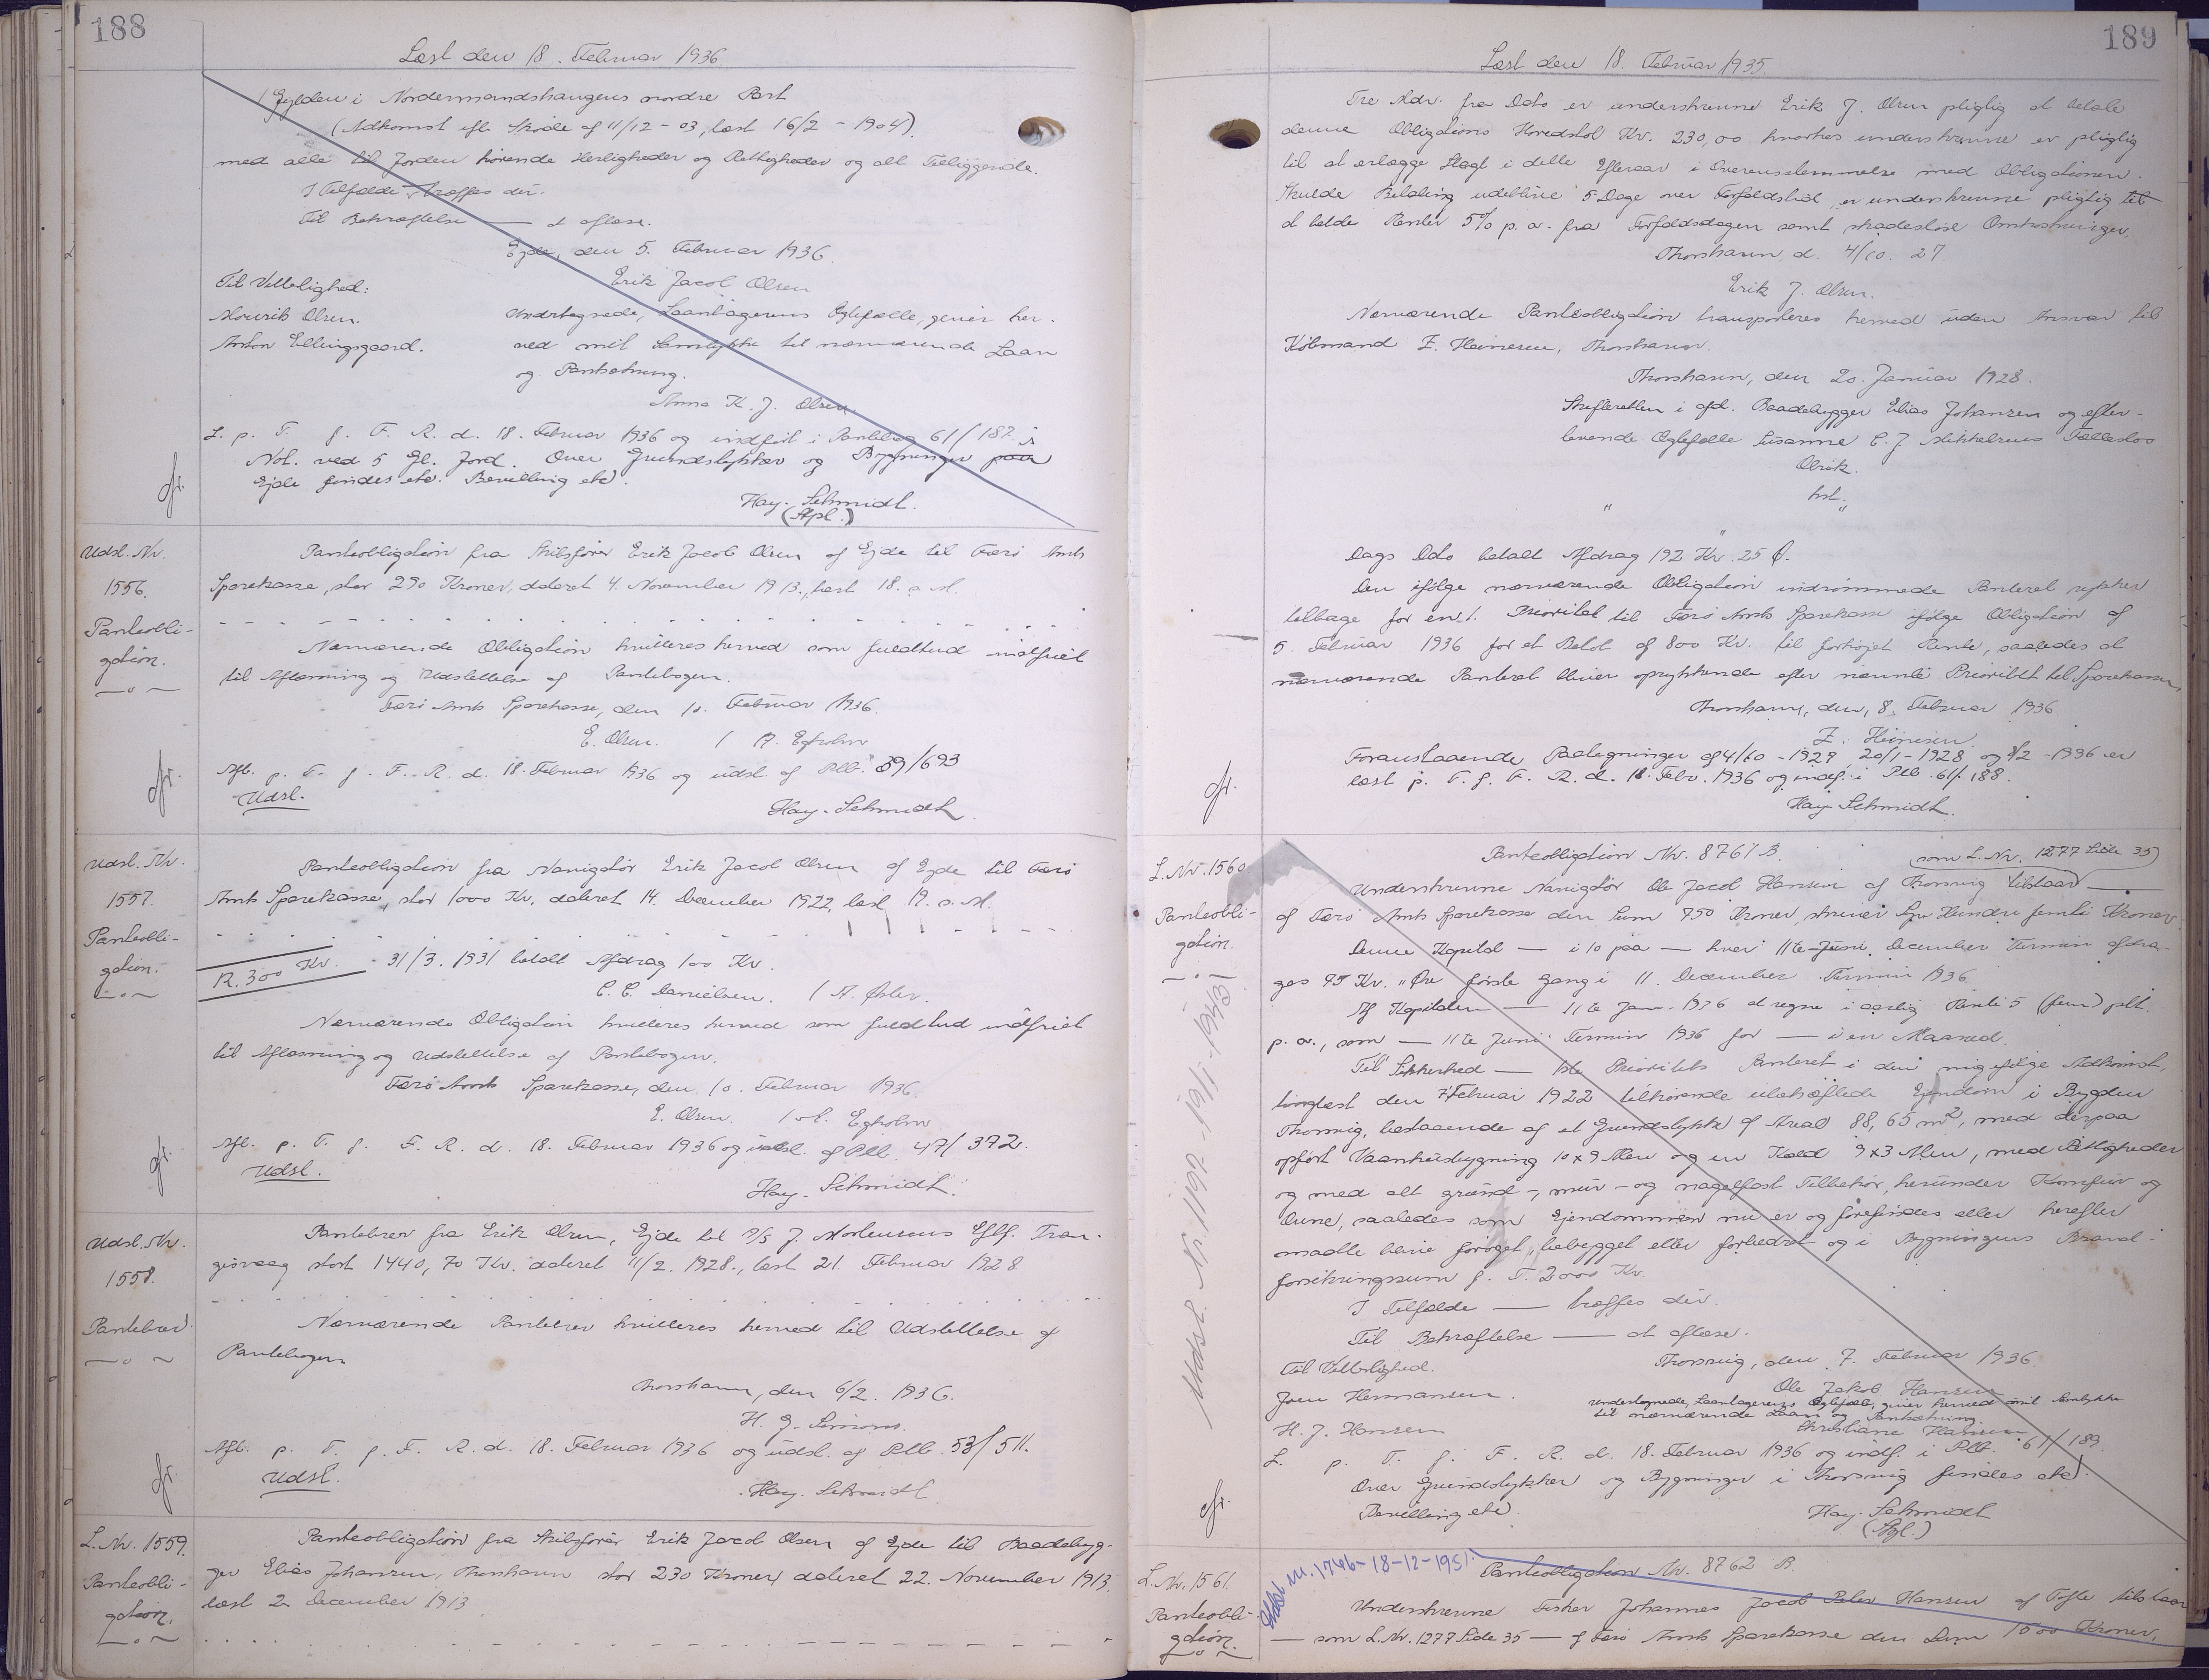 188
Læst den 18. Februar 1936.
1 Gylden i Nordermandshaugens nordre Part
(Adkomst eft. Skøde af 11/12 - 03, læst 16/2 - 1904).
med alle til Jorden hørende Herligheder og Rettigheder og alt Tilliggende.
I Tilfælde træffes der.
Til Bekræftelse — at aflæse.
Ejde, den 5. Februar 1936.
Erik Jacob Olsen
Til Vitterlighed:
Mourits Olsen.
Anton Ellingsgaard.
Undertegnede, Laantagerens Ægtefælle, giver her-
ved mit Samtykke til nærværende Laan
og Pantsætning.
Anna K. J. Olsen.
L. p. T. f. F. R. d. 18. Februar 1936 og indført i Pantebog 61/187.
Not. ved 5 Gl. Jord. Over Grundstykker og Bygninger paa
Ejde findes etc. Bevilling etc.
Hay-Schmidt.
(Spl.)
Udsl. Nr.
1556.
Panteobli-
gation.
Panteobligation fra Skibsfører Erik Jacob Olsen af Ejde til Færø Amts
Sparekasse, stor 290 Kroner, dateret 4. November 1913, læst 18. s. M.
Nærværende Obligation kvitteres herved som fuldtud indfriet
til Aflæsning og Udslettelse af Pantebogen.
Færø Amts Sparekasse, den 10. Februar 1936.
E. Olsen. / A. Egholm
Afl. p. T. f. F. R. d. 18. Februar 1936 og udsl. af Ptb. 39/693
Udsl.
Hay-Schmidt.
Udsl. Nr.
1557.
Panteobli-
gation.
Panteobligation fra Navigatør Erik Jacob Olsen af Ejde til Færø
Amts Sparekasse, stor 1000 Kr. dateret 14. December 1922, læst 19. s. M.
R. 300 Kr. 31/3. 1931 betalt Afdrag 100 Kr.
C. C. Danielsen. / A.
Nærværende Obligation kvitteres herved som fuldtud indfriet
til Aflæsning og Udslettelse af Pantebogen.
Færø Amts Sparekasse, den 10. Februar 1936.
E. Olsen. / A. Egholm
Afl. p. T. f. F. R. d. 18. Februar 1936 og udsl. af Ptb. 47/372.
Udsl.
Hay-Schmidt.
Udsl. Nr.
1558.
Pantebrev
Pantebrev fra Erik Olsen, Ejde til A/S J. Mortensens Eftf. Tran-
gisvaag stort 1440,70 Kr. dateret 11/2. 1928., læst 21. Februar 1928
Nærværende Pantebrev kvitteres herved til Udslettelse af
Pantebogen
Thorshavn, den 6/2. 1936.
H. J. Simons.
Afl. p. T. f. F. R. d. 18. Februar 1936 og udsl. af Ptb. 53/511.
Udsl.
Hay-Schmidt
L. Nr. 1559.
Panteobli-
gation.
Panteobligation fra Skibsfører Erik Jacob Olsen af Ejde til Baadebyg-
ger Elias Johansen, Thorshavn stor 230 Kroner, dateret 22. November 1913.
læst 2. December 1913
189
Læst den 18. Februar 1935.
Tre Mdr. fra Dato er underskrevne Erik J. Olsen pligtig at betale
denne Obligations Hovedstol Kr. 230,00 hvorhos underskrevne er pligtig
til at erlægge Afdrag i dette Efteraar i Overensstemmelse med Obligationen.
Skulde Betaling udeblive 5 Dage over Forfaldstid, er underskrevne pligtig til
at betale Renter 5% p. a. fra Forfaldsdagen samt skadesløse Omkostninger.
Thorshavn, d. 4/10. 27
Erik J. Olsen.
Nærværende Panteobligation transporteres herved uden Ansvar til
Købmand Z. Heinesen, Thorshavn.
Thorshavn, den 20. Januar 1928.
Skifteretten i afd. Baadebygger Elias Johansen og efter-
levende Ægtefælle Susanne C. J. Mikkelsens Fællesbo
Olrik.
kst.
Dags Dato betalt Afdrag 192 Kr. 25 Ø.
Den ifølge nærværende Obligation indrømmede Panteret rykker
tilbage for en 1. Prioritet til Færø Amts Sparekasse ifølge Obligation af
5. Februar 1936 for et Beløb af 800 Kr. til forhøjet Rente, saaledes at
nærværende Panteret bliver oprykkende efter nævnte Prioritet til Sparekassen
Thorshavn, den 8. Februar 1936.
Z. Heinesen
Foranstaaende Paategninger af 4/10 - 1927, 20/1 - 1928 og 8/2 - 1936 er
læst p. T. f. F. R. d. 18. Febr. 1936 og indf. i Ptb. 61/188.
Hay-Schmidt.
L. Nr. 1560.
Panteobli-
gation.
Panteobligation Nr. 8761 B.
(som L. Nr. 1277 Side 35)
Underskrevne Navigatør Ole Jacob Hansen af Thorsvig tilstaar —
af Færø Amts Sparekasse den Sum 950 Kroner, skriver Syv Hundre femti Kroner
Denne Kapital — i 10 paa — hver 11te Juni, December Termin afdra-
ges 95 Kr. „ Øre første Gang i 11. December Termin 1936.
Af Kapitalen — 11te Jan. 1936 at regne i aarlig Rente 5 (fem) pCt.
p. a., som — 11te Juni Termin 1936 for — i en Maaned.
Til Sikkerhed — 1ste Prioritets Panteret i den mig ifølge Adkomst,
tinglæst den 7 Februar 1922 tilhørende ubehæftede Ejendom i Bygden
Thorsvig, bestaaende af et Grundstykke af Areal 88,65 m², med derpaa
opført Vaaningsbygning 10 x 9 Alen og en Kvad 9 x 3 Alen, med Rettigheder
og med alt grund-, mur- og nagelfast Tilbehør, herunder Komfur og
Ovne, saaledes som Ejendommen nu er og forefindes eller herefter
maatte blive forøget, bebygget eller forbedret og i Bygningens Brand-
forsikringssum p. T. 2000 Kr.
I Tilfælde — træffes der.
Til Bekræftelse — at aflæse.
Til Vitterlighed.
Thorsvig, den 7. Februar 1936
Joen Hermansen.
Ole Jakob Hansen
Undertegnede, Laantagerens Ægtefælle, giver herved mit Samtykke
til nærværende Laan og Pantsætning.
H. J. Hansen
Christiane Hansen
L. p. T. f. F. R. d. 18. Februar 1936 og indf. i Ptb. 61/189
Over Grundstykker og Bygninger i Thorsvig findes etc.
Bevilling etc.
Hay-Schmidt
(Spl.)
L. Nr. 1561.
Panteobli-
gation.
Udsl. nr. 1746 - 18-12-1951.
Panteobligation Nr. 8762 B.
Underskrevne Fisker Johannes Jacob Peter Hansen af Tofte tilstaar
— som L. Nr. 1277 Side 35 — af Færø Amts Sparekasse den Sum 1500 Kroner,